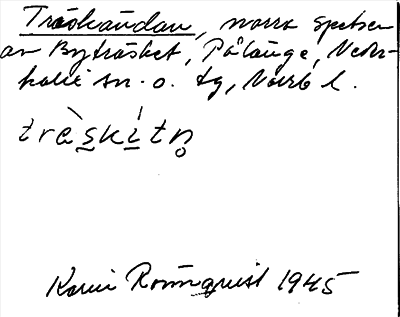 Träskändan, norra spetsen
av Byträsket, Pålänge, Neder-
kalix sn. o. tg, Norrb l.
träskitn̥
Karin Rönnquist 1945